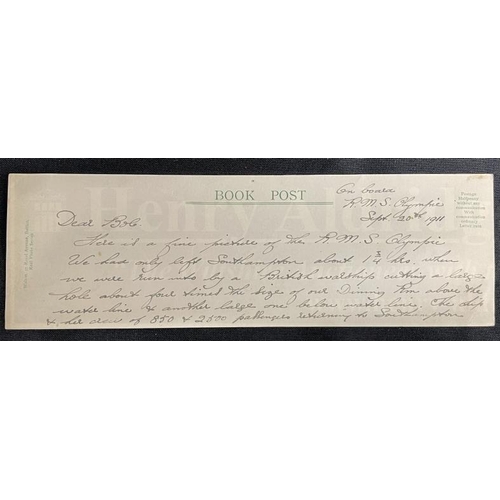 BOOK POST
On board
R.M.S. Olympic
Sept. 20th 1911
Dear Bob
Here is a fine picture of the R.M.S Olympic
We have only left Southampton about 1 3/4 hrs. when
we were run into by a British warship cutting a large
hole about four times the size of our Dinning Rom above the
water line & another large one below water line. The ship
&, her crew of 850 & 2500 passengers returning to Southampton
Henry Ald